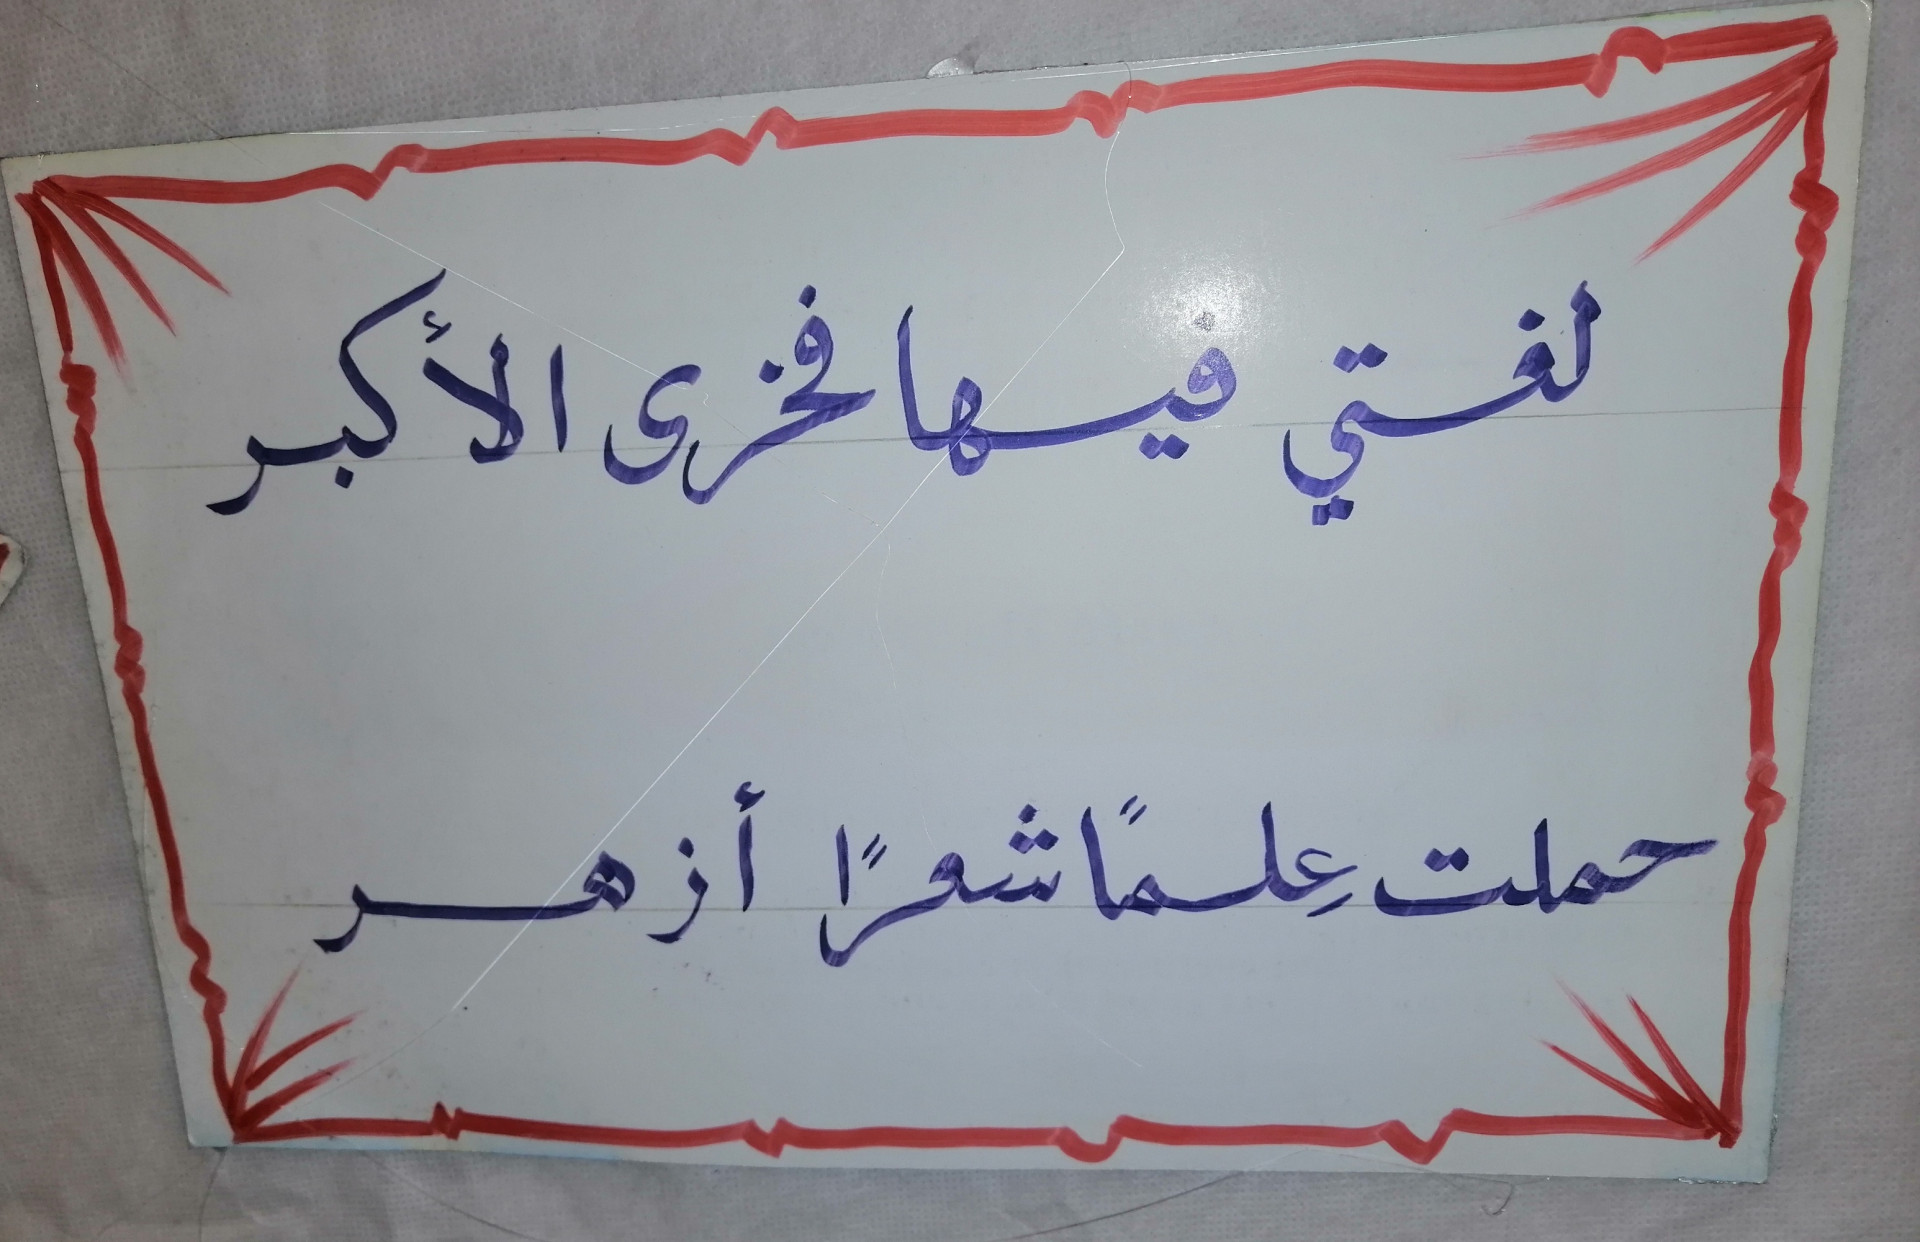 لغتي فيها فخرى الأكبر
حملت عِلمًا شعرًا أزهر